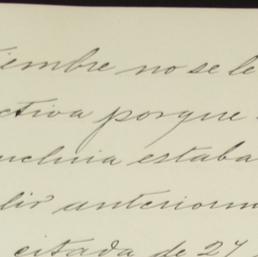 iembre no se le
ctiva porque
estaba
lir anteriorm
citada de 27